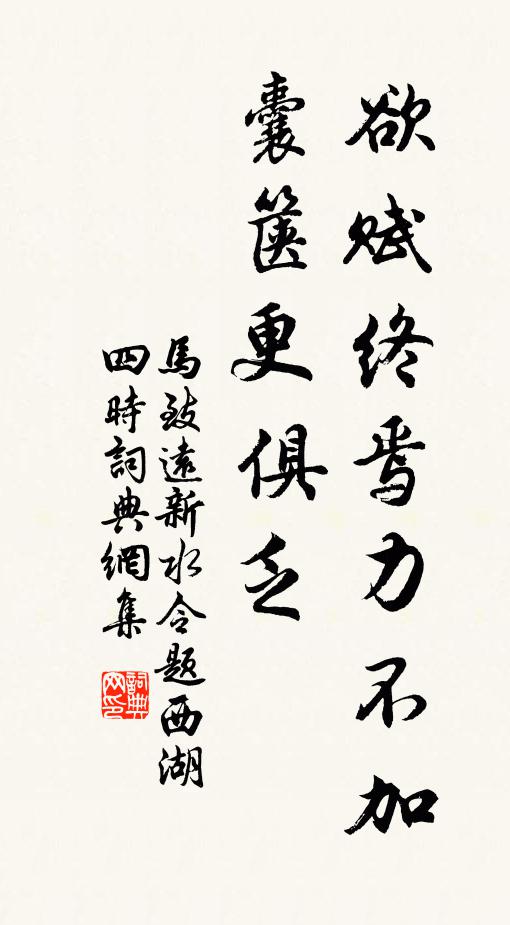 欲赋终焉力不加
囊箧更俱乏
馬致遠新水令题西湖
四時詞典網集
詞典网印